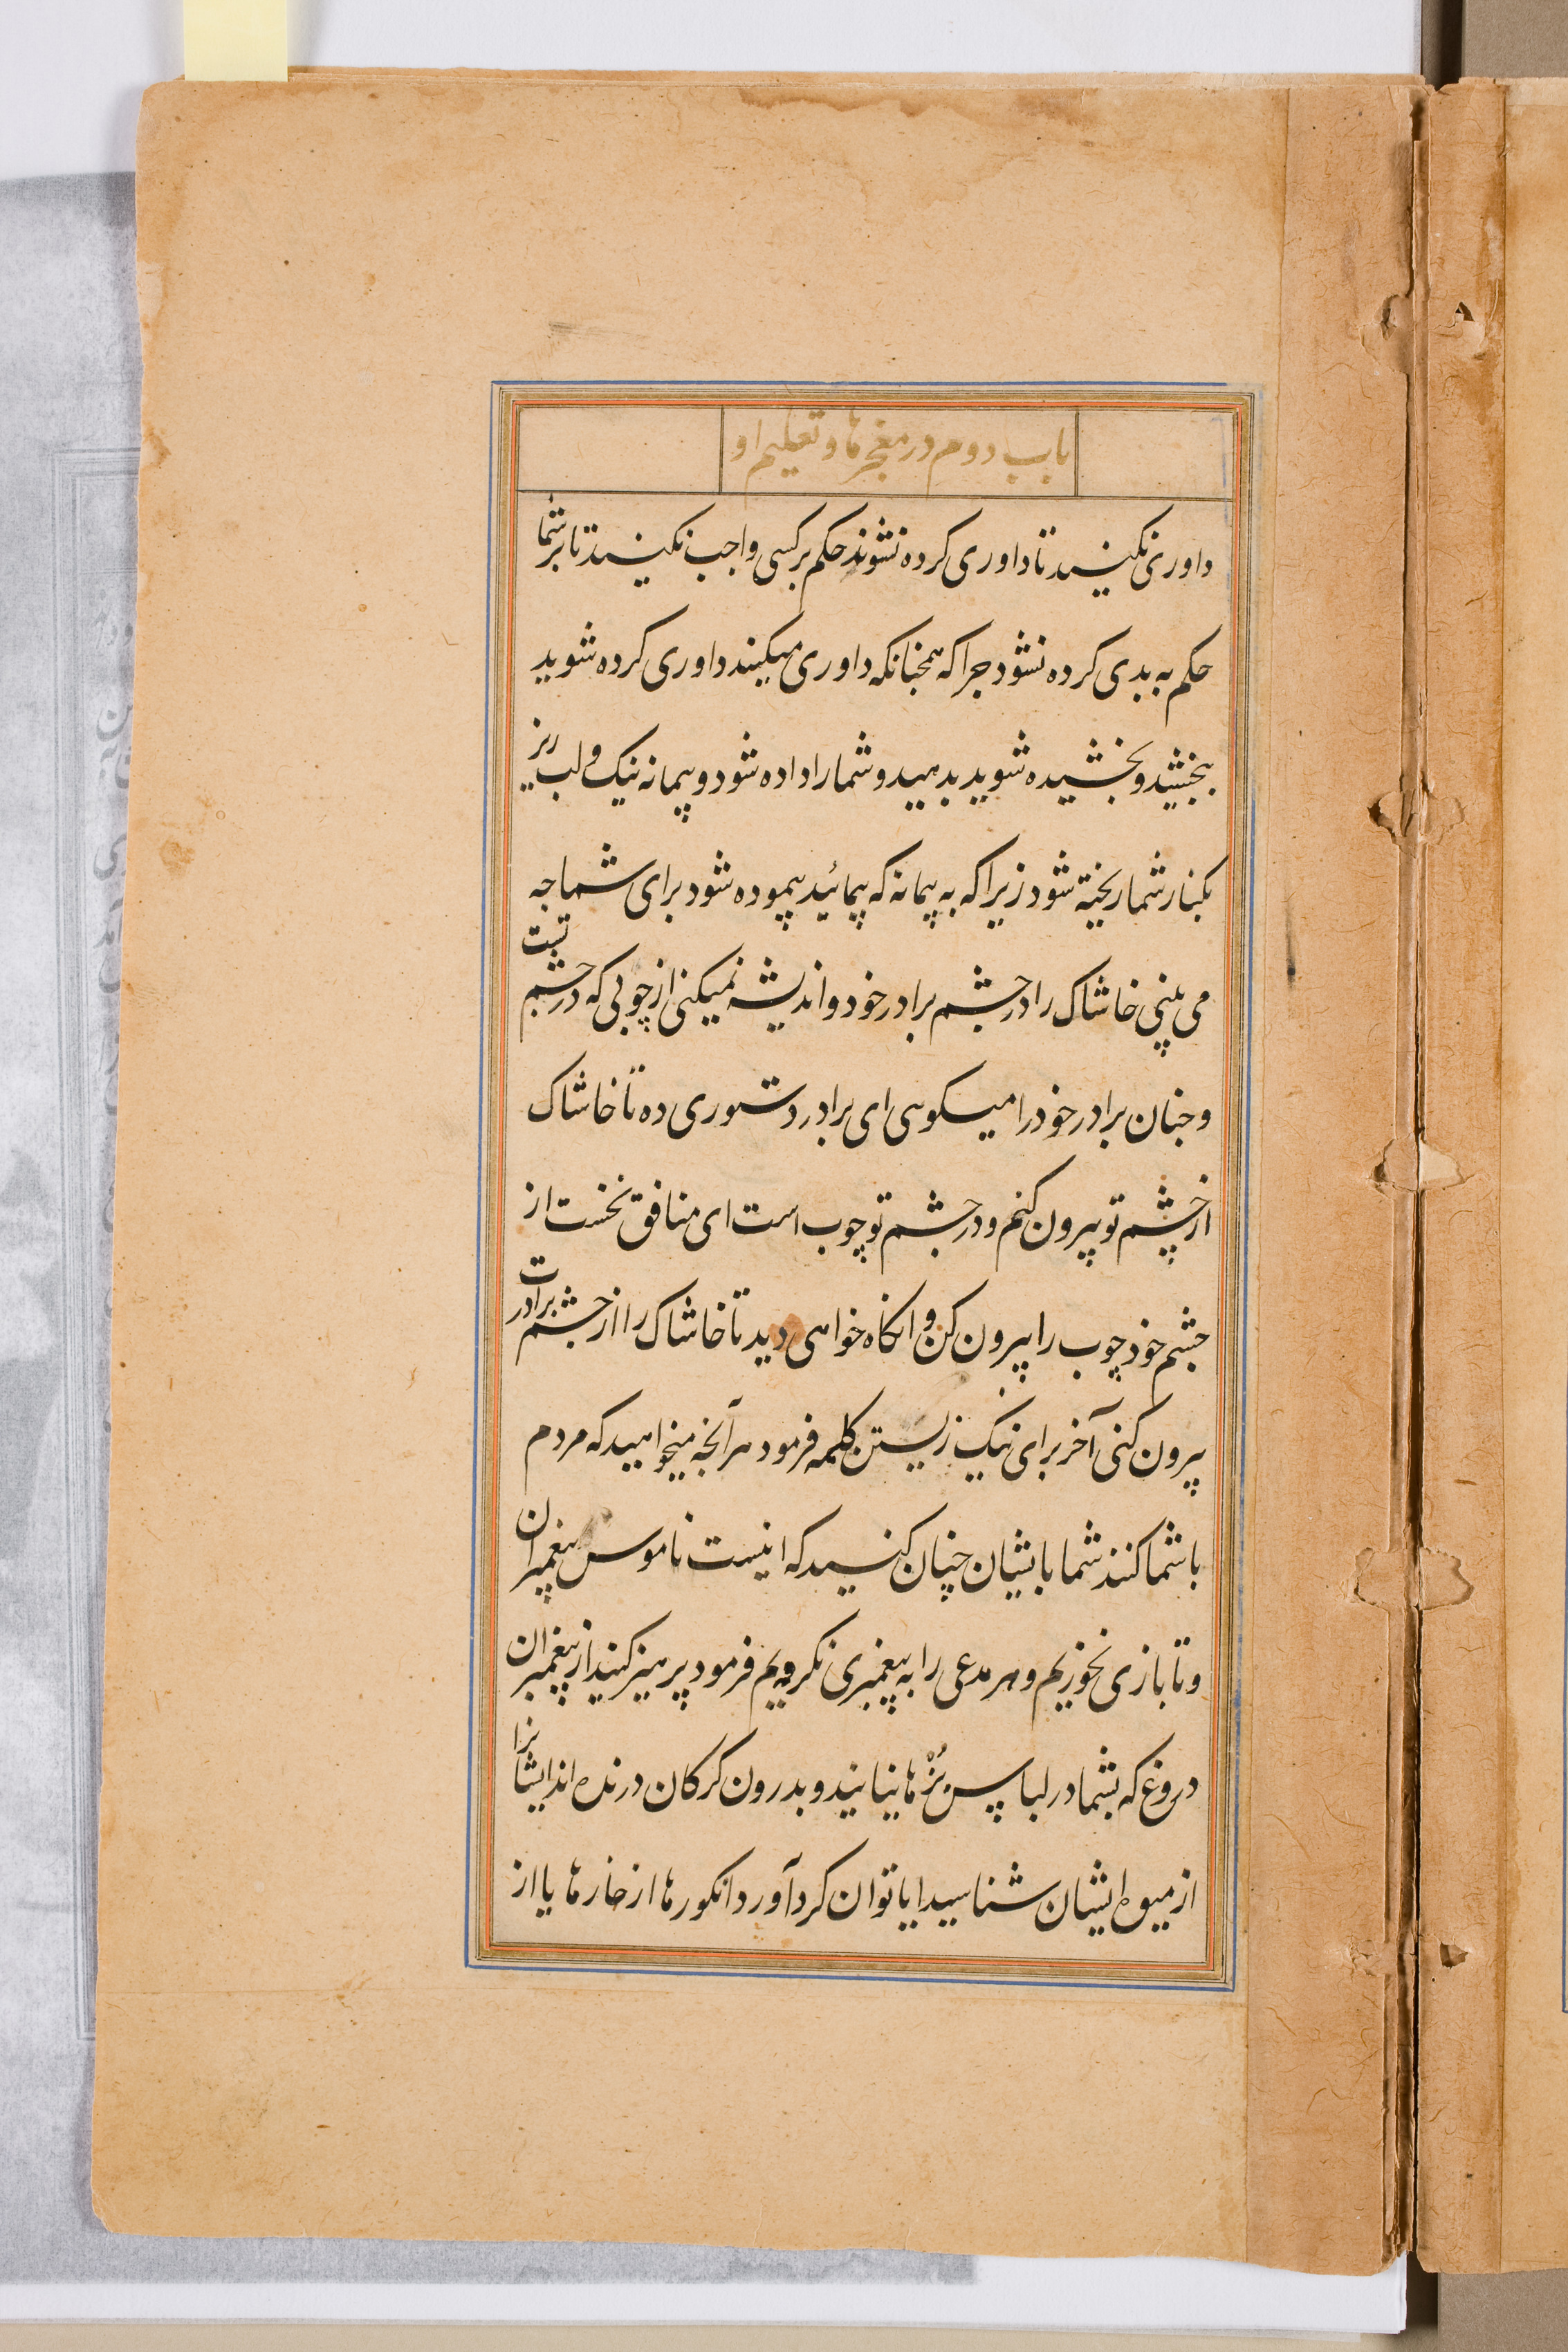 باب دوم در معجزها و تعلیم او
داوری نکنید تا داوری کرده نشوند حکم بر کسی واجب نکنید تا بر شما
حکم به بدی کرده نشود جرا که همجنانکه داوری میکیند داوری کرده شوید
ببخشید و بخشیده شوید بدهید و شما را داده شود و پیمانه نیک و لب ریز
بکنار شما ریخته شود زیرا که به پیمانه که پیمائید پیموده شود برای شما جه
می بینی خاشاک را در جشم برادر خود و اندیشه نمیکنی از چوبی که در جشم تست
و جنان برادر خود را میکوی ای برادر دستوری ده تا خاشاک
از چشم تو بیرون کنم و در جشم تو چوب است ای منافق نخست از
جشم خود چوب را بیرون کن و انکاه خواهی دید تا خاشاک را از جشم برادرت
بیرون کنی آخر برای نیک زیستن کلمه فرمود هر آنجه میخواهید که مردم
با شما کنند شما بایشان چنان کنید که اینست ناموس پیغمبران
و تا بازی نخوریم و هر مدعی را به پیغمبری نکرویم فرمود پرهیز کنید از پیغمبران
دروغ که بشما در لباس بُزْها بیایند و بدرون کرکان درنده اند ایشانرا
از میوه ایشان شناسید ایا توان کرد آورد انکورها از خارها یا از